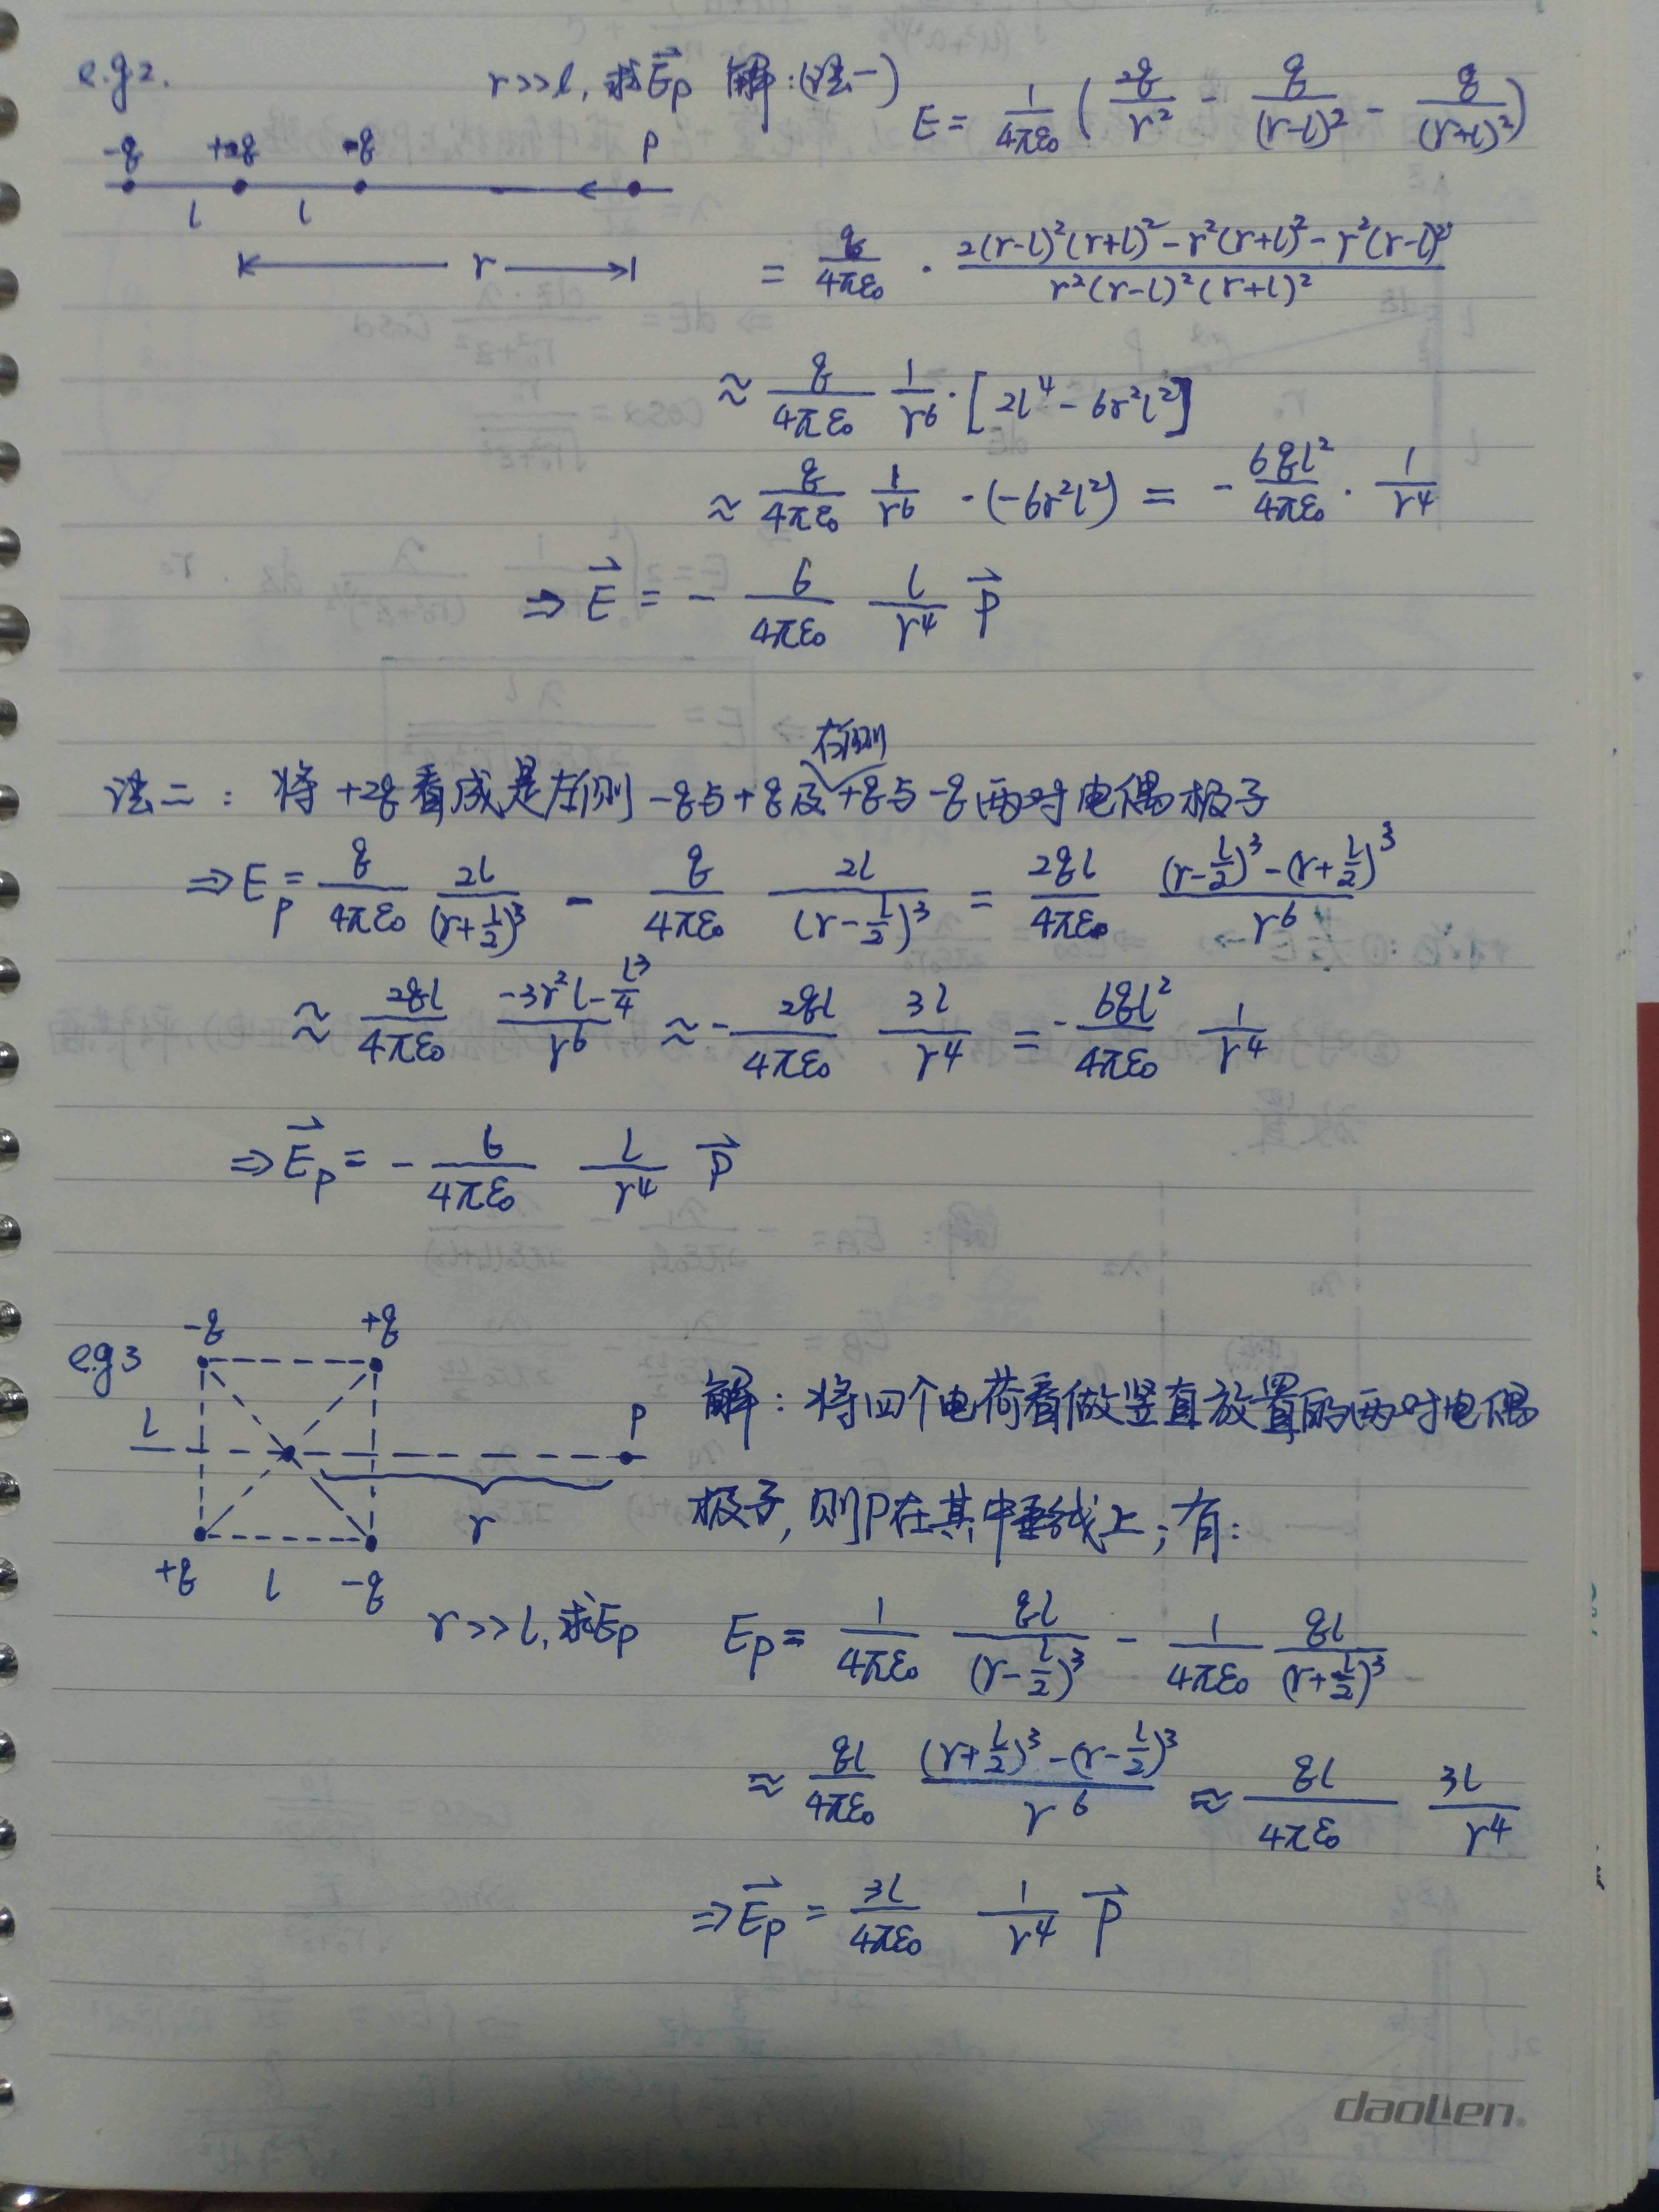 e.g2. r>>l, 求E⃗p 解:(法一) E = 1/4πε₀ (2q/r² - q/(r-l)² - q/(r+l)²)
-q +2q -q P
l l
r
= q/4πε₀ · [2(r-l)²(r+l)² - r²(r+l)² - r²(r-l)²] / [r²(r-l)²(r+l)²]
≈ q/4πε₀ 1/r⁶ · [2l⁴ - 6r²l²]
≈ q/4πε₀ 1/r⁶ · (-6r²l²) = - 6ql²/4πε₀ · 1/r⁴
⇒ E⃗ = - 6/4πε₀ l/r⁴ P⃗
右侧
法二: 将+2q看成是左侧-q与+q及+q与-q两对电偶极子
⇒ Ep = q/4πε₀ 2l/(r+l/2)³ - q/4πε₀ 2l/(r-l/2)³ = 2ql/4πε₀ [(r-l/2)³-(r+l/2)³]/r⁶
≈ 2ql/4πε₀ (-3r²l - l³/4)/r⁶ ≈ - 2ql/4πε₀ 3l/r⁴ = - 6ql²/4πε₀ 1/r⁴
⇒ E⃗p = - 6/4πε₀ l/r⁴ P⃗
e.g3 -q +q
l P
r
+q l -q
r>>l, 求Ep
解: 将四个电荷看做竖直放置的两对电偶
极子, 则P在其中垂线上, 有:
Ep = 1/4πε₀ ql/(r-l/2)³ - 1/4πε₀ ql/(r+l/2)³
≈ ql/4πε₀ [(r+l/2)³-(r-l/2)³]/r⁶ ≈ ql/4πε₀ 3l/r⁴
⇒ E⃗p = 3l/4πε₀ 1/r⁴ P⃗
daolien